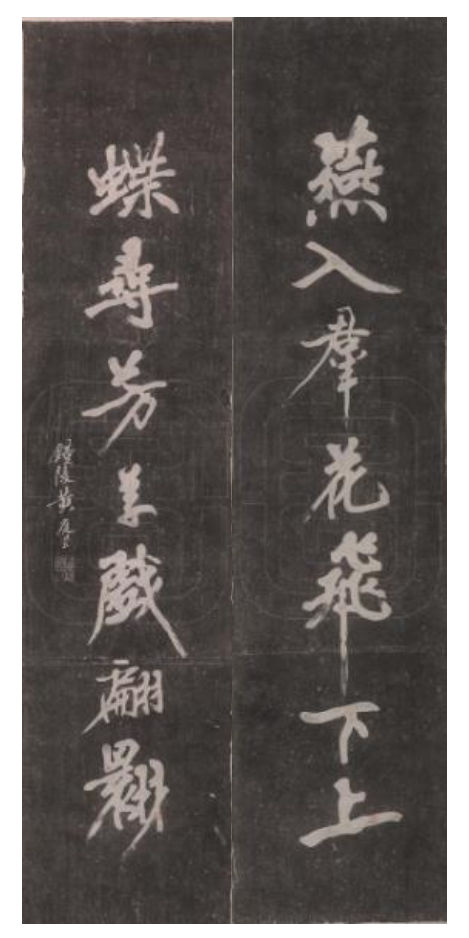 燕入群花飛下上
蝶尋芳草戲翩翾
鐘陵黃